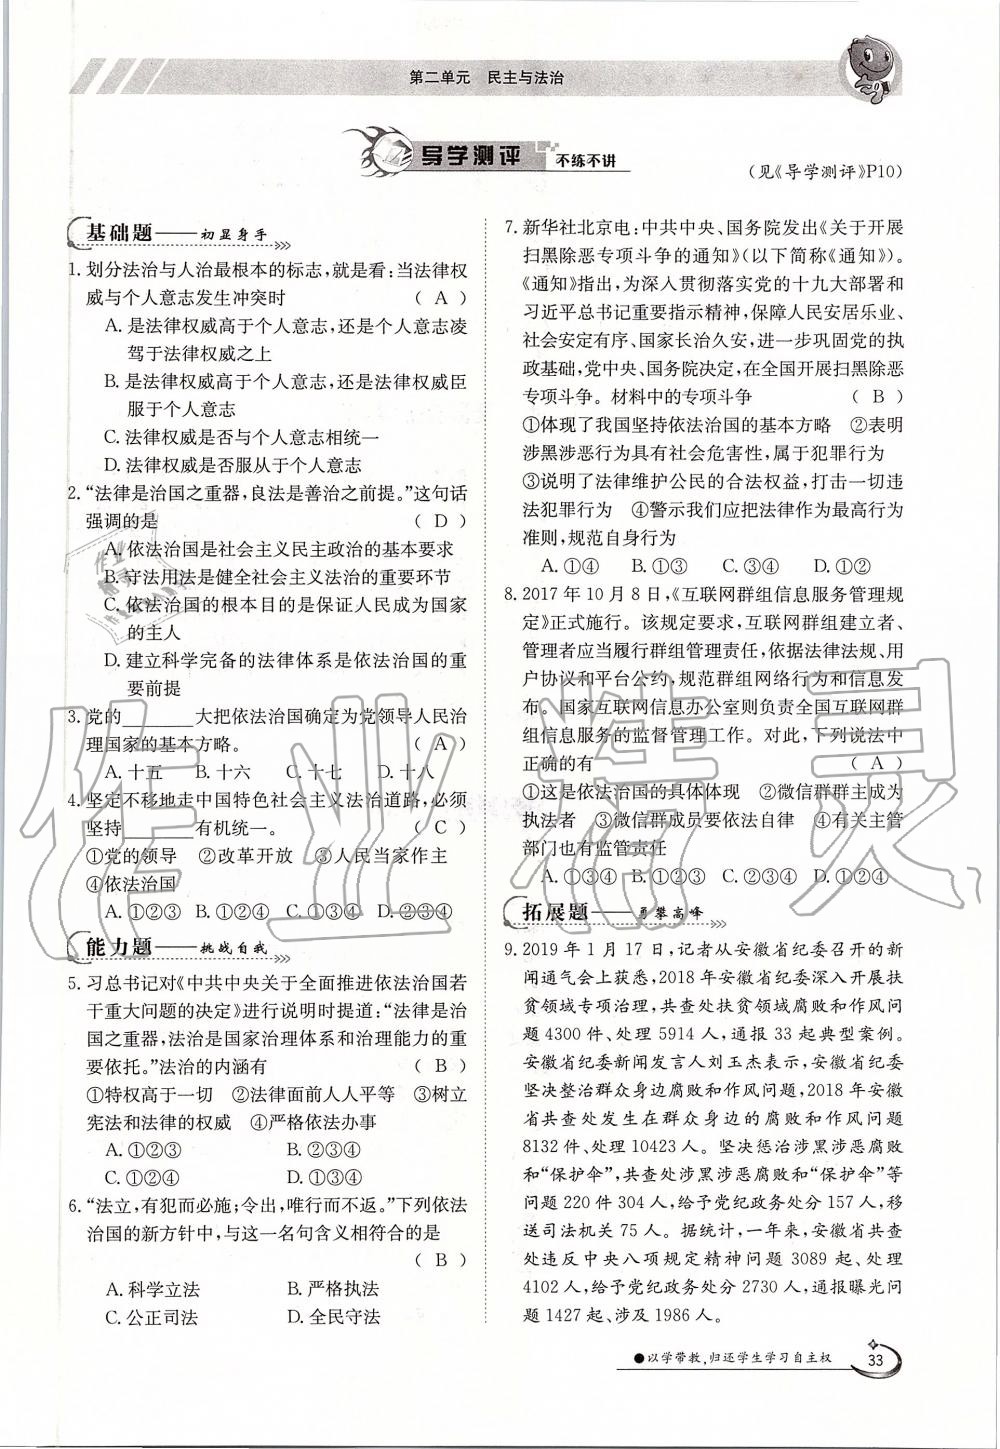 第二单元　民主与法治
导学测评 不练不讲
(见《导学测评》P10)
基础题——初显身手
1. 划分法治与人治最根本的标志,就是看:当法律权
威与个人意志发生冲突时　(　A　)
A. 是法律权威高于个人意志,还是个人意志凌
驾于法律权威之上
B. 是法律权威高于个人意志,还是法律权威臣
服于个人意志
C. 法律权威是否与个人意志相统一
D. 法律权威是否服从于个人意志
2. “法律是治国之重器,良法是善治之前提。”这句话
强调的是　(　D　)
A. 依法治国是社会主义民主政治的基本要求
B. 守法用法是健全社会主义法治的重要环节
C. 依法治国的根本目的是保证人民成为国家
的主人
D. 建立科学完备的法律体系是依法治国的重
要前提
3. 党的________大把依法治国确定为党领导人民治
理国家的基本方略。　(　A　)
A. 十五　B. 十六　C. 十七　D. 十八
4. 坚定不移地走中国特色社会主义法治道路,必须
坚持________有机统一。　(　C　)
①党的领导　②改革开放　③人民当家作主
④依法治国
A. ①②③　B. ①②④　C. ①③④　D. ②③④
能力题——挑战自我
5. 习总书记对《中共中央关于全面推进依法治国若
干重大问题的决定》进行说明时提道:“法律是治
国之重器,法治是国家治理体系和治理能力的重
要依托。”法治的内涵有　(　B　)
①特权高于一切　②法律面前人人平等　③树立
宪法和法律的权威　④严格依法办事
A. ①②③　B. ②③④
C. ①②④　D. ①③④
6. “法立,有犯而必施;令出,唯行而不返。”下列依法
治国的新方针中,与这一名句含义相符合的是
(　B　)
A. 科学立法　B. 严格执法
C. 公正司法　D. 全民守法
7. 新华社北京电:中共中央、国务院发出《关于开展
扫黑除恶专项斗争的通知》(以下简称《通知》)。
《通知》指出,为深入贯彻落实党的十九大部署和
习近平总书记重要指示精神,保障人民安居乐业、
社会安定有序、国家长治久安,进一步巩固党的执
政基础,党中央、国务院决定,在全国开展扫黑除恶
专项斗争。材料中的专项斗争　(　B　)
①体现了我国坚持依法治国的基本方略　②表明
涉黑涉恶行为具有社会危害性,属于犯罪行为
③说明了法律维护公民的合法权益,打击一切违
法犯罪行为　④警示我们应把法律作为最高行为
准则,规范自身行为
A. ①④　B. ①③　C. ②③　D. ①②
8. 2017 年 10 月 8 日,《互联网群组信息服务管理规
定》正式施行。该规定要求,互联网群组建立者、
管理者应当履行群组管理责任,依据法律法规、用
户协议和平台公约,规范群组网络行为和信息发
布。国家互联网信息办公室则负责全国互联网群
组信息服务的监督管理工作。对此,下列说法中
正确的有　(　A　)
①这是依法治国的具体体现　②微信群群主成为
执法者　③微信群成员要依法自律　④有关主管
部门也有监管责任
A. ①③④　B. ①②④　C. ①②③　D. ②③④
拓展题——勇攀高峰
9. 2019 年 1 月 17 日,记者从安徽省纪委召开的新
闻通气会上获悉,2018 年安徽省纪委深入开展扶
贫领域专项治理,共查处扶贫领域腐败和作风问
题 4300 件、处理 5914 人,通报 33 起典型案例。
安徽省纪委新闻发言人刘玉杰表示,安徽省纪委
坚决整治群众身边腐败和作风问题,2018 年安徽
省共查处发生在群众身边的腐败和作风问题
8132 件、处理 10423 人。坚决惩治涉黑涉恶腐败
和“保护伞”,共查处涉黑涉恶腐败和“保护伞”等
问题 220 件 304 人,给予党纪政务处分 157 人,移
送司法机关 75 人。据统计,一年来,安徽省共查
处违反中央八项规定精神问题 3089 起、处理
4102 人,给予党纪政务处分 2730 人,通报曝光问
题 1427 起、涉及 1986 人。
●以学带教,归还学生学习自主权
33
作业精灵